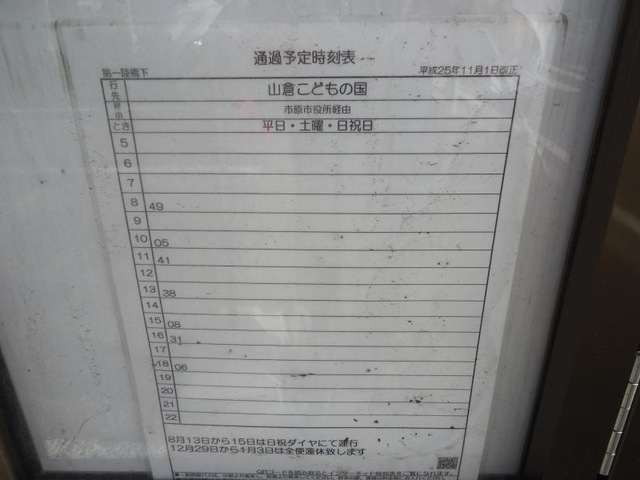 通過予定時刻表
第一陸橋下 平成25年11月1日改正
行先 山倉こどもの国
経由 市原市役所経由
とき 平日・土曜・日祝日
5
6
7
8 49
9
10 05
11 41
12
13 38
14
15 08
16 31
17
18 06
19
20
21
22
8月13日から15日は日祝ダイヤにて運行
12月29日から1月3日は全便運休致します
QRコードを読み取るとインターネット時刻表をご覧になれます。